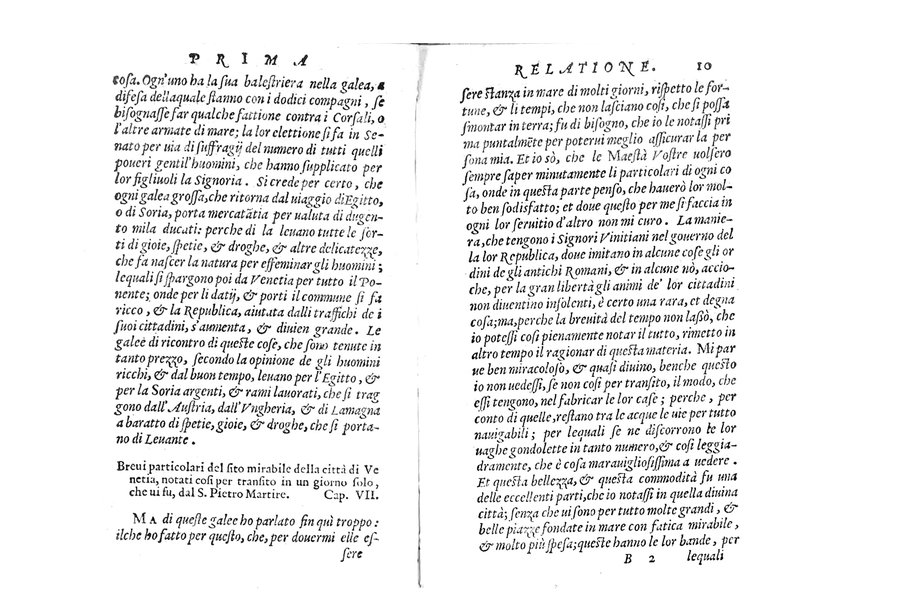 PRIMA
cosa. Ogn'uno ha la sua balestriera nella galea, a
difesa della quale stanno con i dodici compagni, se
bisognasse far qualche fattione contra i Corsali, o
l'altre armate di mare; la lor elettione si fa in Se-
nato per uia di suffragij del numero di tutti quelli
poueri gentil'huomini, che hanno supplicato per
lor figliuoli la Signoria. Si crede per certo, che
ogni galea grossa, che ritorna dal uiaggio di Egitto,
o di Soria, porta mercatātia per ualuta di dugen-
to mila ducati: perche di la leuano tutte le sor-
ti di gioie, spetie, & droghe, & altre delicatezze,
che fa nascer la natura per effeminar gli huomini;
lequali si spargono poi da Venetia per tutto il Po-
nente; onde per li datij, & porti il commune si fa
ricco, & la Republica, aiutata dalli traffichi de i
suoi cittadini, s'aumenta, & diuien grande. Le
galee di ricontro di queste cose, che sono tenute in
tanto prezzo, secondo la opinione de gli huomini
ricchi, & dal buon tempo, leuano per l'Egitto, &
per la Soria argenti, & rami lauorati, che si trag
gono dall'Austria, dall'Vngheria, & di Lamagna
a baratto di spetie, gioie, & droghe, che si porta-
no di Leuante.
Breui particolari del sito mirabile della città di Ve
netia, notati cosi per transito in un giorno solo,
che ui fu, dal S. Pietro Martire. Cap. VII.
MA di queste galee ho parlato fin quì troppo:
ilche ho fatto per questo, che, per douermi elle es-
sere
RELATIONE. 10
sere stanza in mare di molti giorni, rispetto le for-
tune, & li tempi, che non lasciano cosi, che si possa
smontar in terra; fu di bisogno, che io le notassi pri
ma puntalmēte per poterui meglio assicurar la per
sona mia. Et io sò, che le Maestà Vostre uolsero
sempre saper minutamente li particolari di ogni co
sa, onde in questa parte penso, che hauerò lor mol-
to ben sodisfatto; et doue questo per me si faccia in
ogni lor seruitio d'altro non mi curo. La manie-
ra, che tengono i Signori Vinitiani nel gouerno del
la lor Republica, doue imitano in alcune cose gli or
dini de gli antichi Romani, & in alcune nò, accio-
che, per la gran libertà gli animi de' lor cittadini
non diuentino insolenti, è certo una rara, et degna
cosa; ma, perche la breuità del tempo non lassò, che
io potessi cosi pienamente notar il tutto, rimetto in
altro tempo il ragionar di questa materia. Mi par
ue ben miracoloso, & quasi diuino, benche questo
io non uedessi, se non cosi per transito, il modo, che
essi tengono, nel fabricar le lor case; perche, per
conto di quelle, restano tra le acque le uie per tutto
nauigabili; per lequali se ne discorrono le lor
uaghe gondolette in tanto numero, & cosi leggia-
dramente, che è cosa marauigliosissima a uedere.
Et questa bellezza, & questa commodità fu una
delle eccellenti parti, che io notassi in quella diuina
città; senza che ui sono per tutto molte grandi, &
belle piazze fondate in mare con fatica mirabile,
& molto più spesa; queste hanno le lor bande, per
B 2 lequali